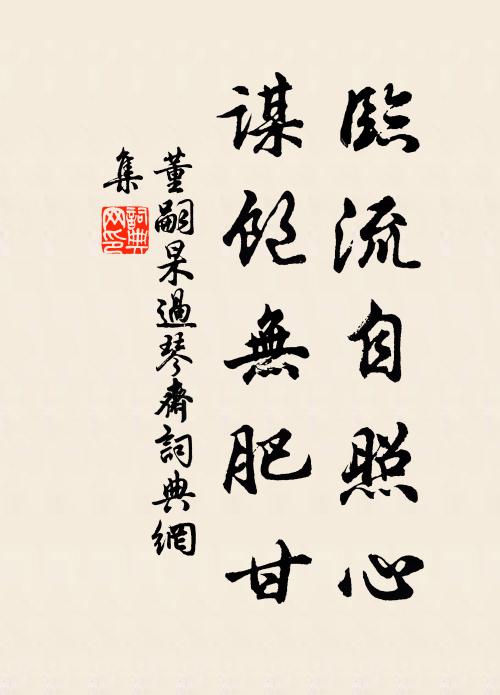 臨流自照心
謀飽無肥甘
董嗣杲過琴齋詞典網
集
詞典
网印